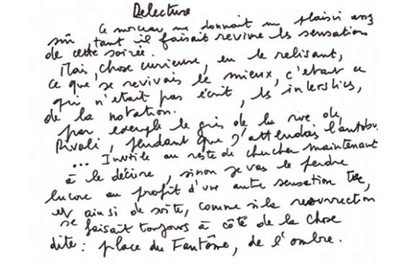 Relecture
Ce morceau me donnait un plaisir assez
sûr, tant il faisait revivre les sensations
de cette soirée.
Mai, chose curieuse, en le relisant,
ce que je revivais le mieux, c'était ce
qui n'était pas écrit, les interstices,
de la notation.
par exemple le gris de la rue de
Rivoli, pendant que j'attendais l'autobus
... Inutile au reste de chercher maintenant
à le décrire, sinon je vais le perdre
encore au profit d'une autre sensation tue,
et ainsi de suite, comme si la résurrection
se faisait toujours à côté de la chose
dite : place du Fantôme, de l'ombre.